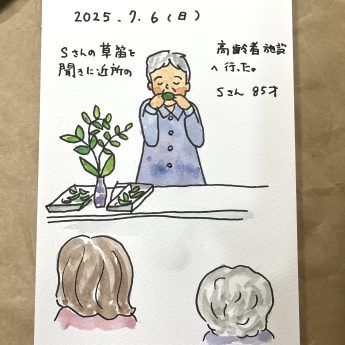 2025.7.6(日)
Sさんの草笛を
聞きに近所の
高齢者施設
へ行った。
Sさん 85才